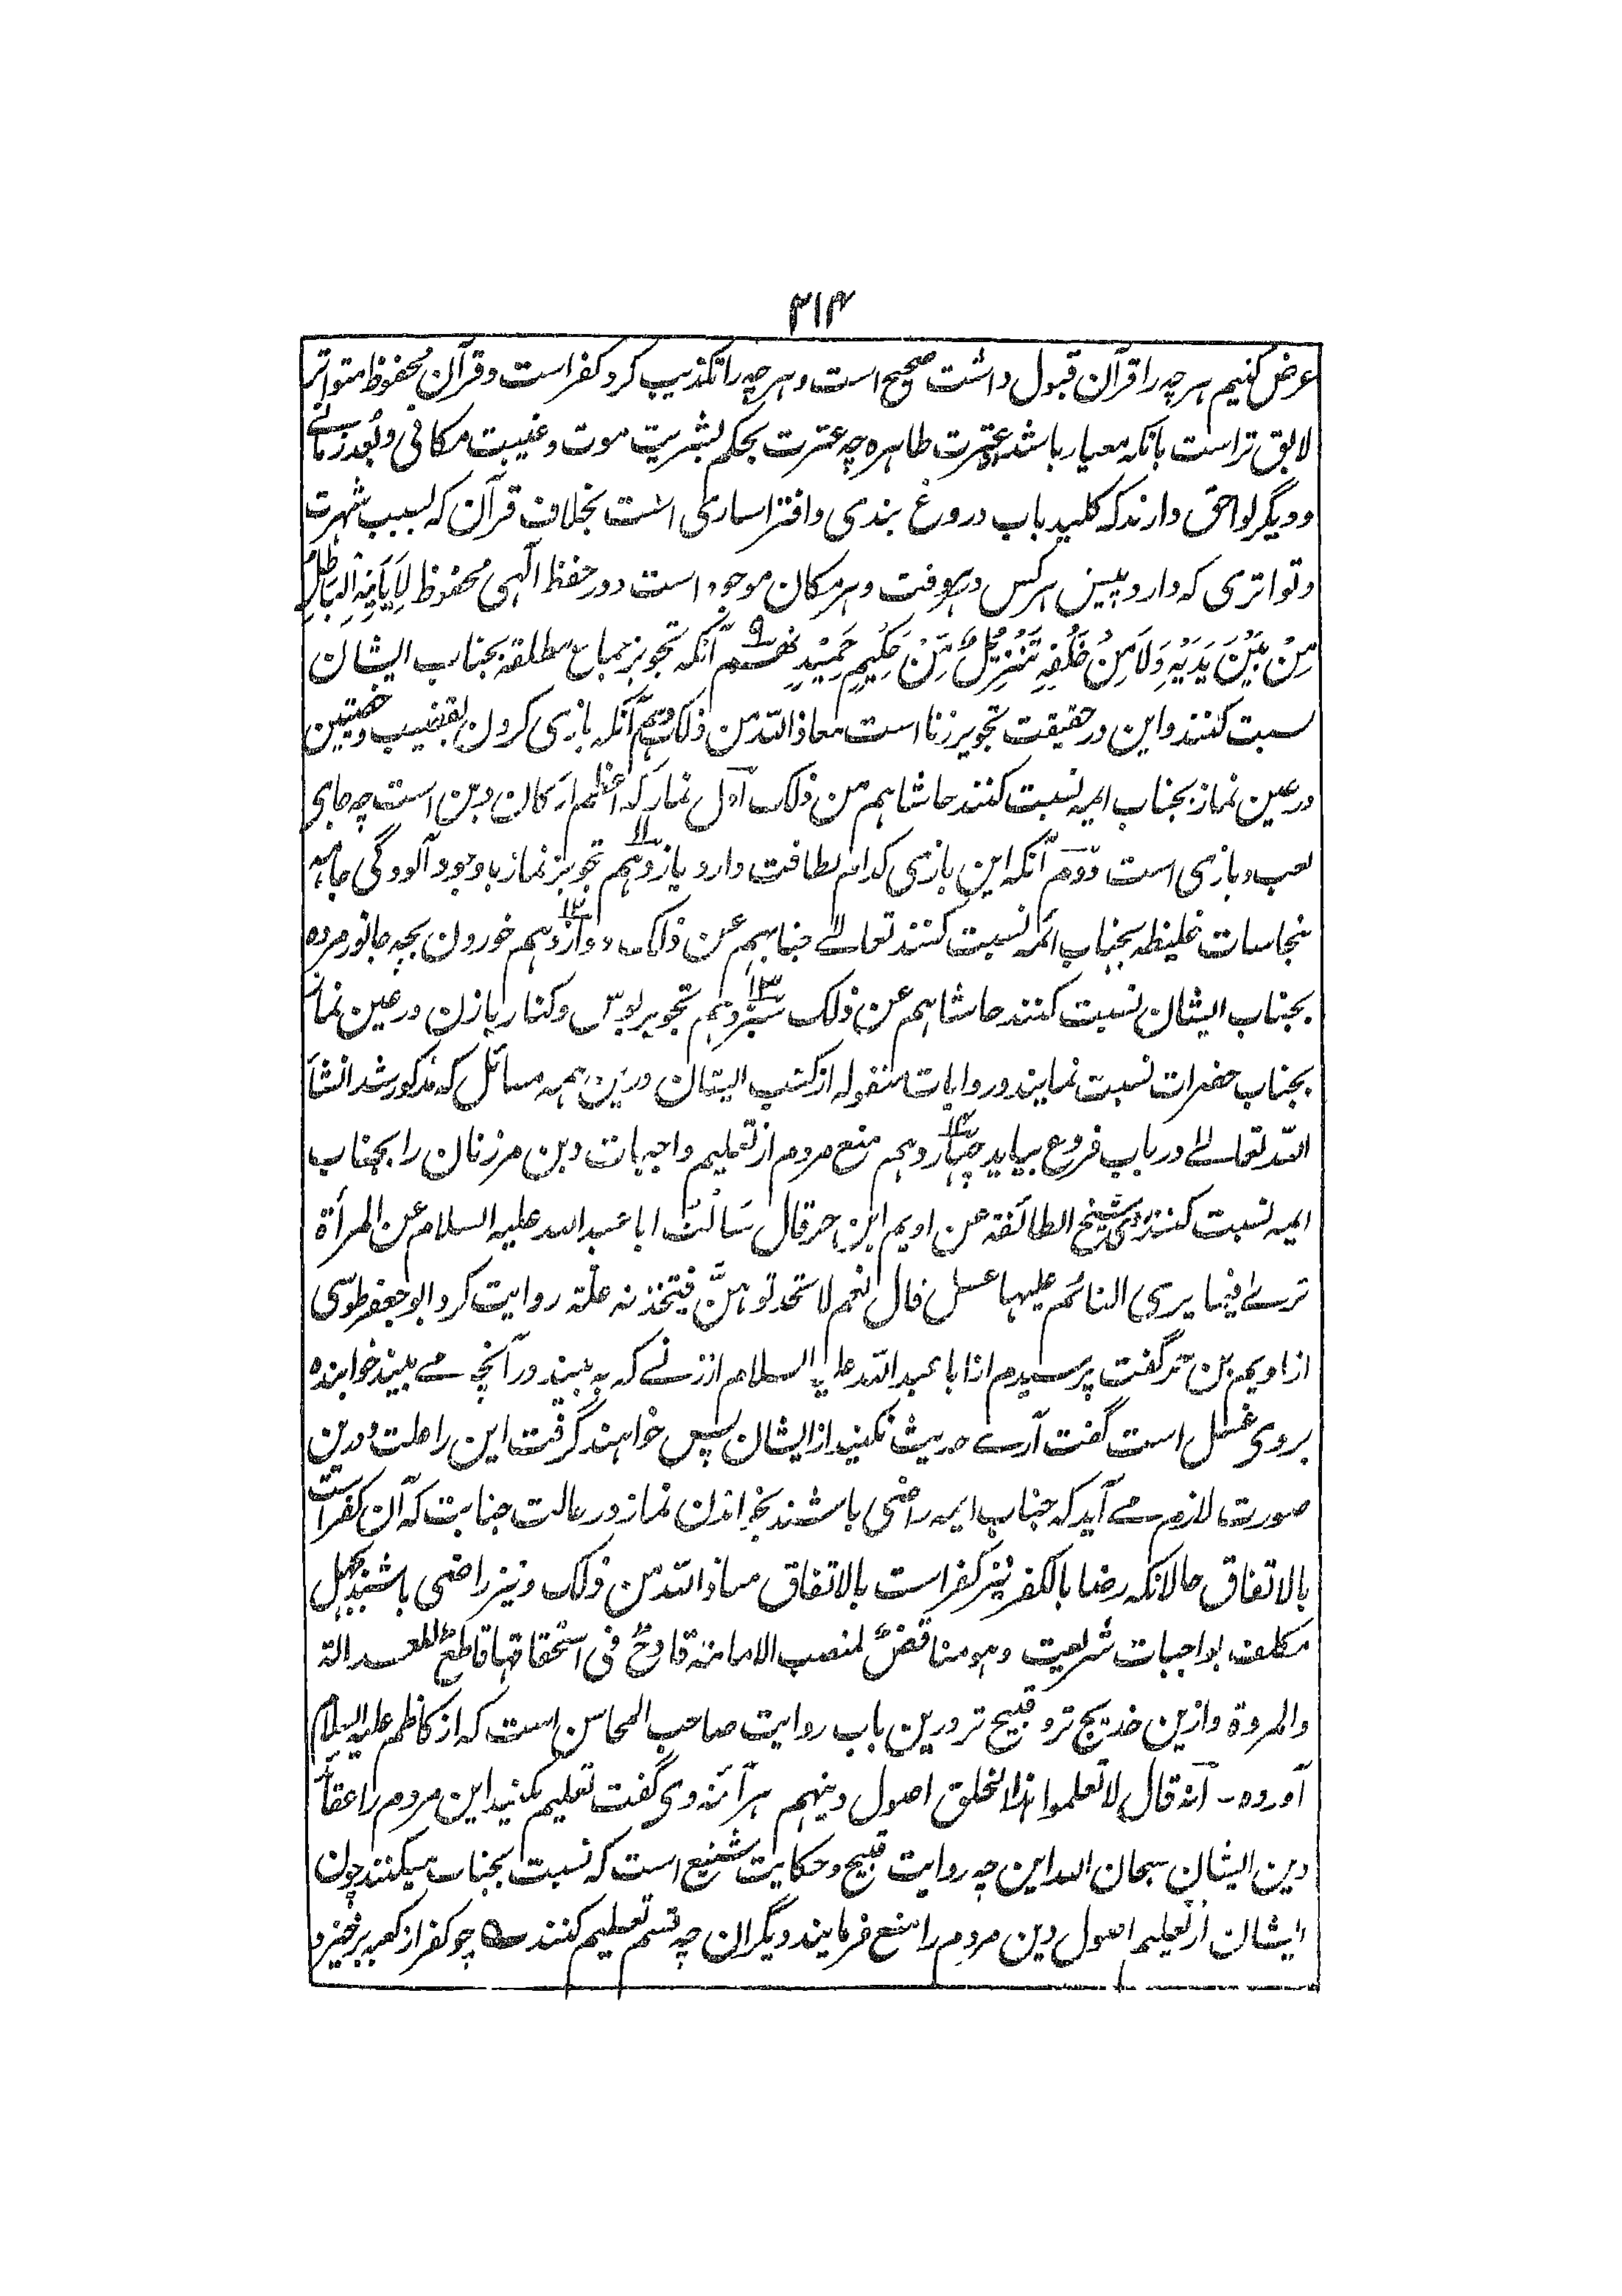 ۲۱۴
عرض کنیم هر چه را قرآن قبول داشت صحیح است و هر چه را تکذیب کرد کفر است و قرآن محفوظ متواتر
لایق تر است بانکه معیار باشد عترت طاهره چه عترت بحکم بشریت موت و غیبت مکانی و بُعد زمانے
و دیگر لواحق دارند که کلید باب دروغ بندی و افترا سازی است بخلاف قرآن که بسبب شهرت
و تواتری که دارد پیش هر کس در هر وقت و هر مکان موجود است و در حفظ الٰهی محفوظ لَا یَأْتِیْهِ الْبَاطِلُ
مِنْ بَیْنِ یَدَیْهِ وَلَا مِنْ خَلْفِهٖ تَنْزِیْلٌ مِّنْ حَکِیْمٍ حَمِیْدٍ نهم ۹ آنکه تجویز جماع مطلقه بجناب ایشان
نسبت کنند و این در حقیقت تجویز زنا است معاذ اللّٰه من ذلک دهم آنکه بازی کردن بقضیب و خصیتین
در عین نماز بجناب ایمه نسبت کنند حاشاهم من ذلک اول نماز که اعظم ارکان دین است چه جای
لعب و بازی است دوم آنکه این بازی کدام لطافت دارد یازدهم ۱۱ تجویز نماز باوجود آلودگی جامه
بنجاسات غلیظه بجناب ائمه نسبت کنند تعالےٰ جنابهم عن ذلک دوازدهم ۱۲ خوردن بچه جانور مرده
بجناب ایشان نسبت کنند حاشاهم عن ذلک سیزدهم ۱۳ تجویز بوس و کنار بازن در عین نماز
بجناب حضرات نسبت نمایند و روایات منقوله از کتب ایشان درین همه مسائل که مذکور شد انشأ
اللّٰه تعالےٰ در باب فروع بیاید چهاردهم ۱۴ منع مردم از تعلیم واجبات دین مر زنان را بجناب
ایمه نسبت کنند روی شیخ الطائفة عن ادیم ابن حر قال سَألتُ ابا عبد الله علیه السلام عن المرأة
ترےٰ فیما یری النائم علیها غسل قال نعم لا تحدثوهنَّ فیتخذنه علّة روایت کرد ابو جعفر طوسی
از ادیم بن حر گفت پرسیدم از ابا عبد اللّٰه علیه السلام از زنے که به بیند در آنچه مے بیند خوابنده
بروی غسل است گفت آرے حدیث نکنید از ایشان پس خواهند گرفت این را علت و درین
صورت لازم مے آید که جناب ایمه راضی باشند بخواندن نماز در حالت جنابت که آن کفر است
بالاتفاق حالانکه رضا بالکفر نیز کفر است بالاتفاق معاذ اللّٰه من ذلک و نیز راضی باشند بجهل
مکلف بواجبات شریعت و هو مناقضٌ لمنصب الامامة قادحٌ فی استحقاقها قاطعٌ للعدالة
والمروة و ازین خدیج تر و قبیح تر درین باب روایت صاحب المحاسن است که از کاظم علیه السلام
آورده - انه قال لا تعلموا هذا الخلق اصول دینهم هر آئنه وی گفت تعلیم مکنید این مردم را عقائد
دین ایشان سبحان الله این چه روایت قبیح و حکایت شنیع است که نسبت بجناب میکنند چون
ایشان از تعلیم اصول دین مردم را منع فرمایند دیگران چه قسم تعلیم کنند ؎ چو کفر از کعبه برخیزد